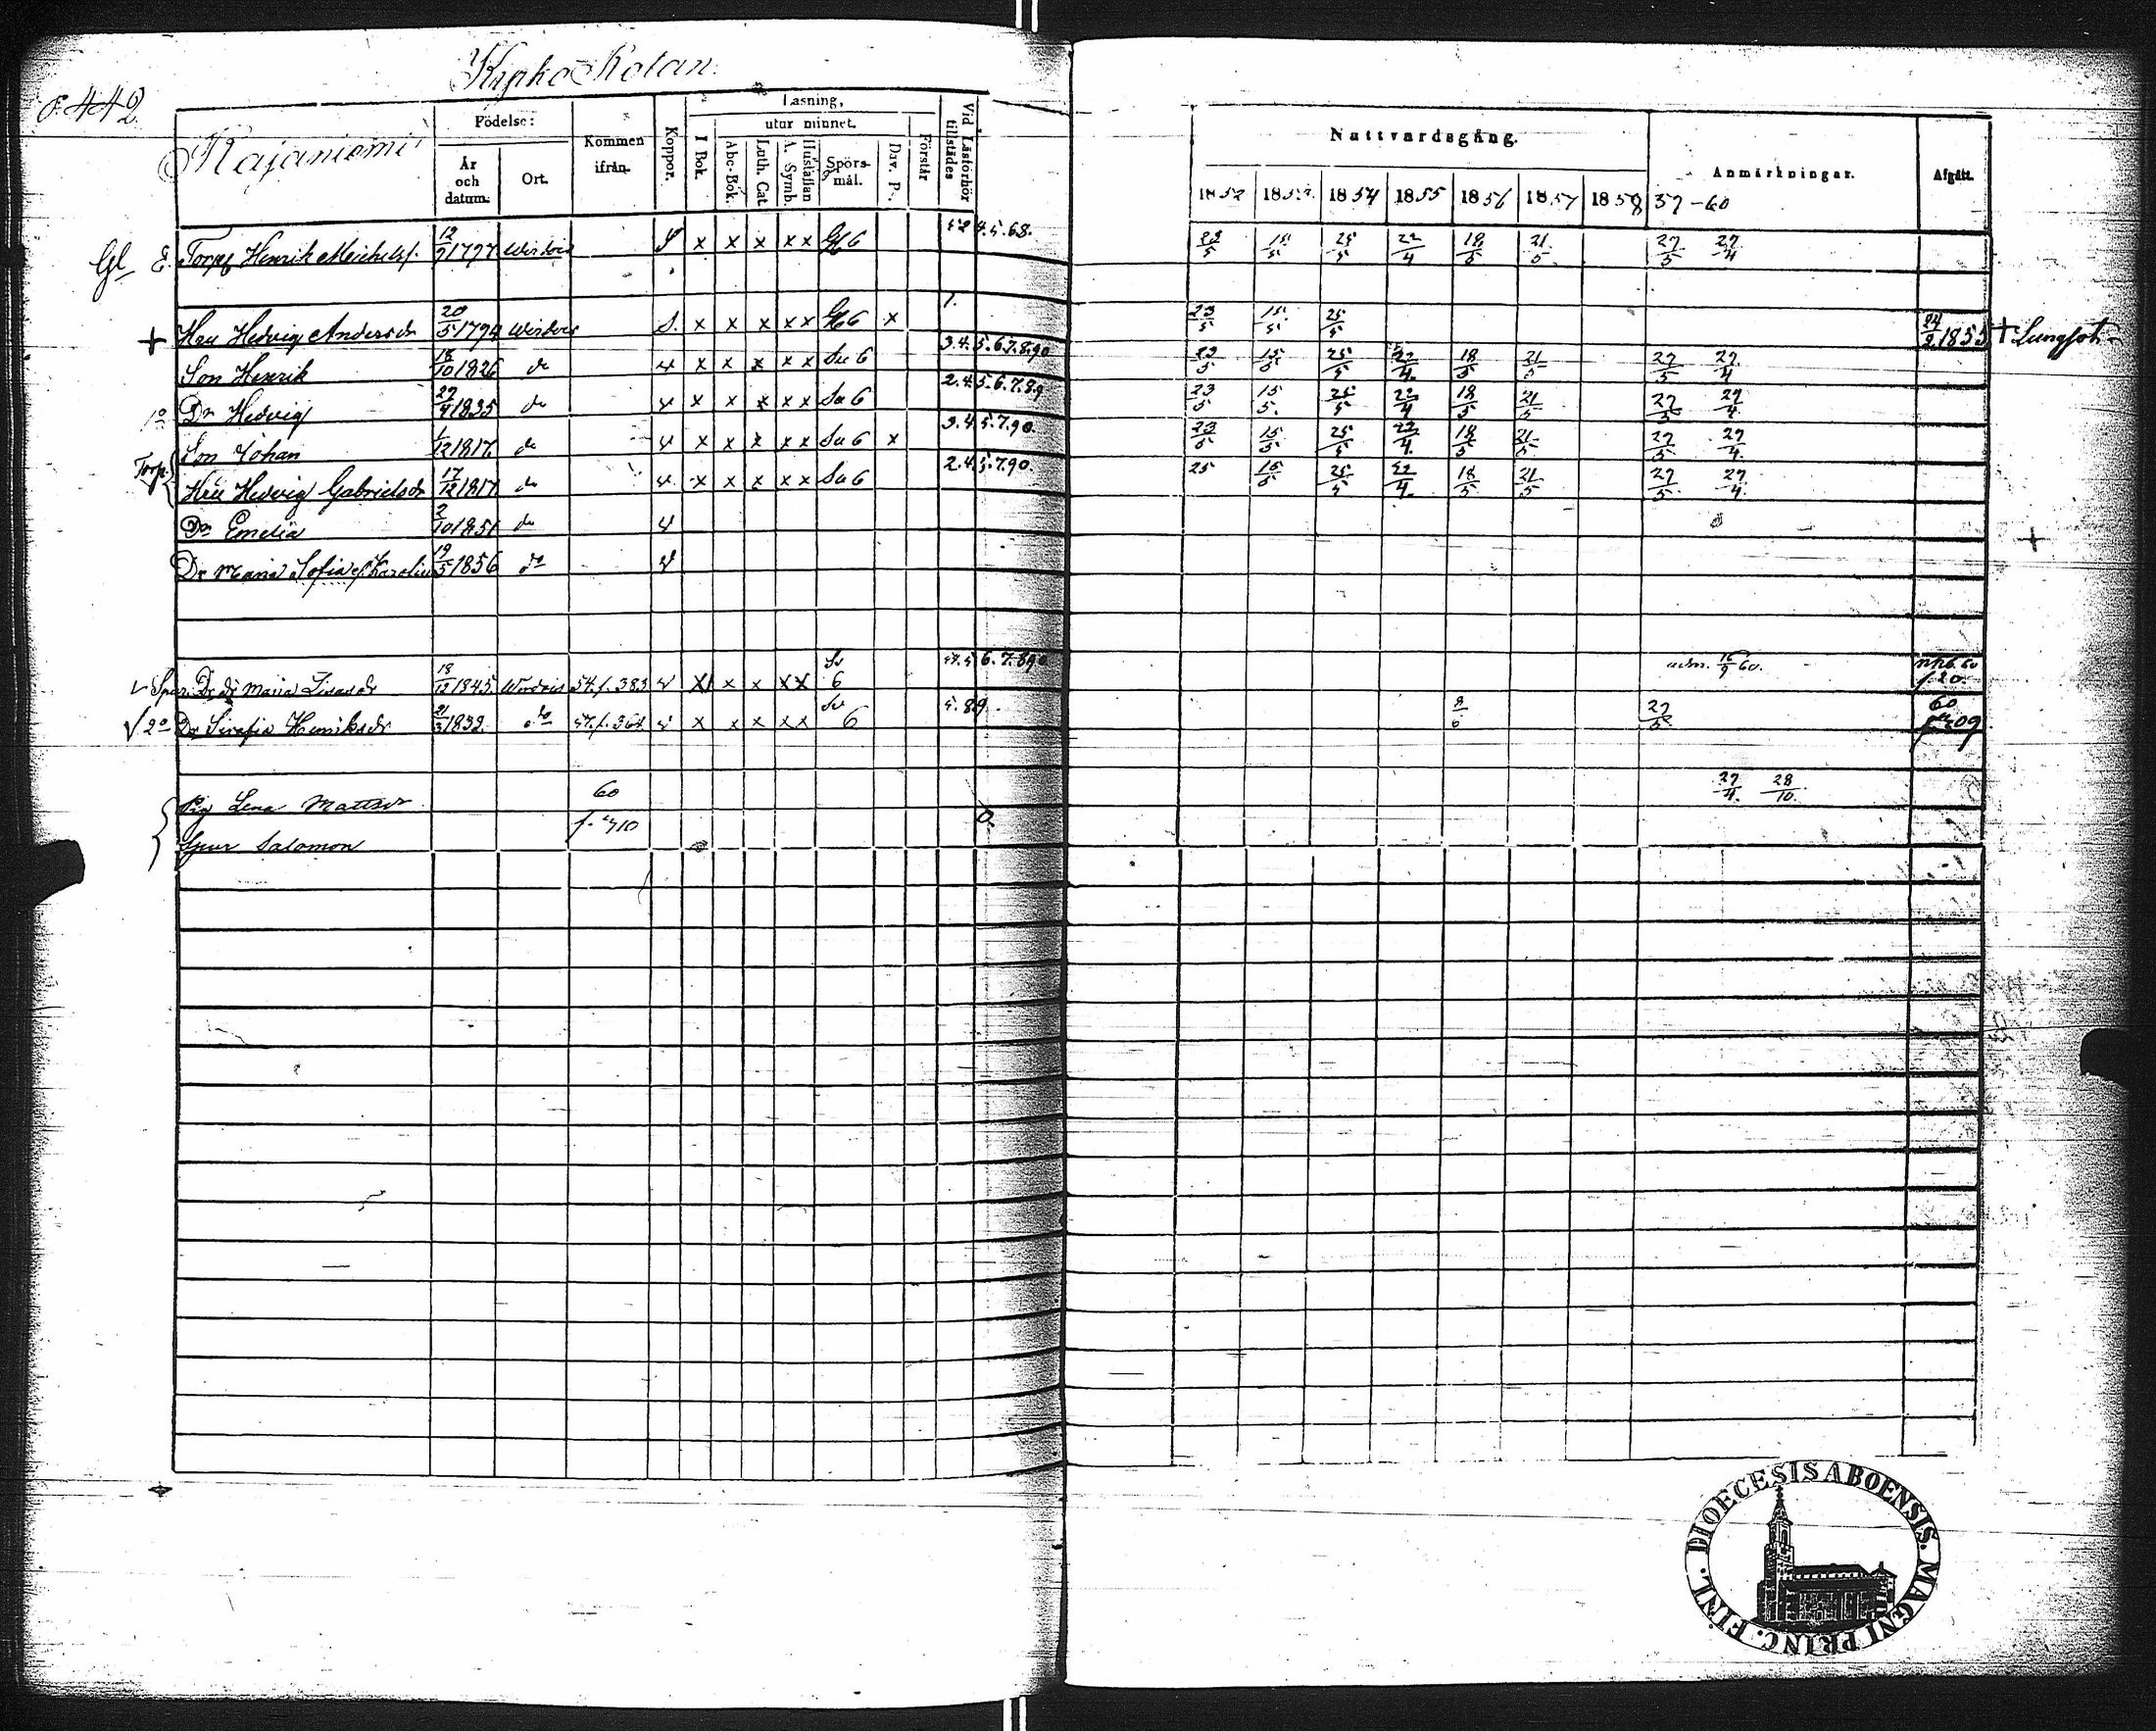 Kipko Rotan.
442
Rajaniemi
Födelse:
År och datum.
Ort.
Kommen ifrån.
Koppor.
Läsning,
utur minnet.
I Bok.
Abc-Bok.
Luth. Cat.
A. Symb.
Hustaflan
Spörsmål.
Dav. P.
Förstår
Vid Läsförhör tillstädes
Nattvardsgång.
1852 1853 1854 1855 1856 1857 1858
Anmärkningar.
59-60
Afgått.
Gl E. Torp Henrik Michelss. 12/9 1797 Wirdois S x x x x x 6 4.5.68. 23/5 15/5 25/5 22/4 18/5 21/5 27/5 27/4
+ Hru Hedvig Andersdr 20/5 1794 Wirdois S. x x x x x 6 x 7. 23/5 15/5 25/5 24/2 1855 + Lungsot
Son Henrik 18/10 1826 do v x x x x x Su 6 3.4.5.6.7.8.90 23/5 15/5 25/5 22/4 18/5 21/5 27/5 27/4
1o Dr Hedvig 27/4 1835 do v x x x x x Su 6 2.4.5.6.7.8.9 23/5 15/5 25/5 22/4 18/5 21/5 27/5 27/4
Torp. Son Johan 1/12 1817 do v x x x x x Su 6 x 3.4.5.7.90. 23/5 15/5 25/5 22/4 18/5 21/5 27/5 27/4
Hru Hedvig Gabrielsdr 17/12 1817 do v x x x x x Su 6 2.4.5.7.90. 25 15/5 25/5 22/4 18/5 21/5 27/5 27/4
Dr Emelia 2/10 1851 do v
Dr Maria Sofia Karolina 19/5 1856 do v +
Dr Maria Lisasdr 18/12 1845 Wirdois 54.f.383 v x x x x x 6 6.7.8.90 adm. 16/9 60. f.20.
2o Dr Serafia Henriksdr 21/3 1832 do 57.f.364 v x x x x x 6 5.89. 8/6 27/5 60
Pig Lena Mattsdr 60 27/4 28/10
Spur Salomon
DIOECESIS ABOENSIS. MAGNI PRINC. FINL.